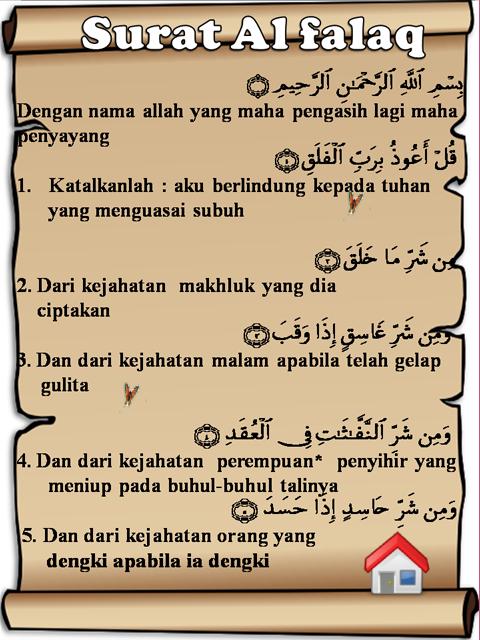 Surat Al falaq
بِسْمِ ٱللَّهِ ٱلرَّحْمَـٰنِ ٱلرَّحِيمِ ۝١
Dengan nama allah yang maha pengasih lagi maha
penyayang
قُلْ أَعُوذُ بِرَبِّ ٱلْفَلَقِ ۝١
1. Katalkanlah : aku berlindung kepada tuhan
yang menguasai subuh
مِن شَرِّ مَا خَلَقَ ۝٢
2. Dari kejahatan makhluk yang dia
ciptakan
وَمِن شَرِّ غَاسِقٍ إِذَا وَقَبَ ۝٣
3. Dan dari kejahatan malam apabila telah gelap
gulita
وَمِن شَرِّ ٱلنَّفَّـٰثَـٰتِ فِى ٱلْعُقَدِ ۝٤
4. Dan dari kejahatan perempuan* penyihir yang
meniup pada buhul-buhul talinya
وَمِن شَرِّ حَاسِدٍ إِذَا حَسَدَ ۝٥
5. Dan dari kejahatan orang yang
dengki apabila ia dengki